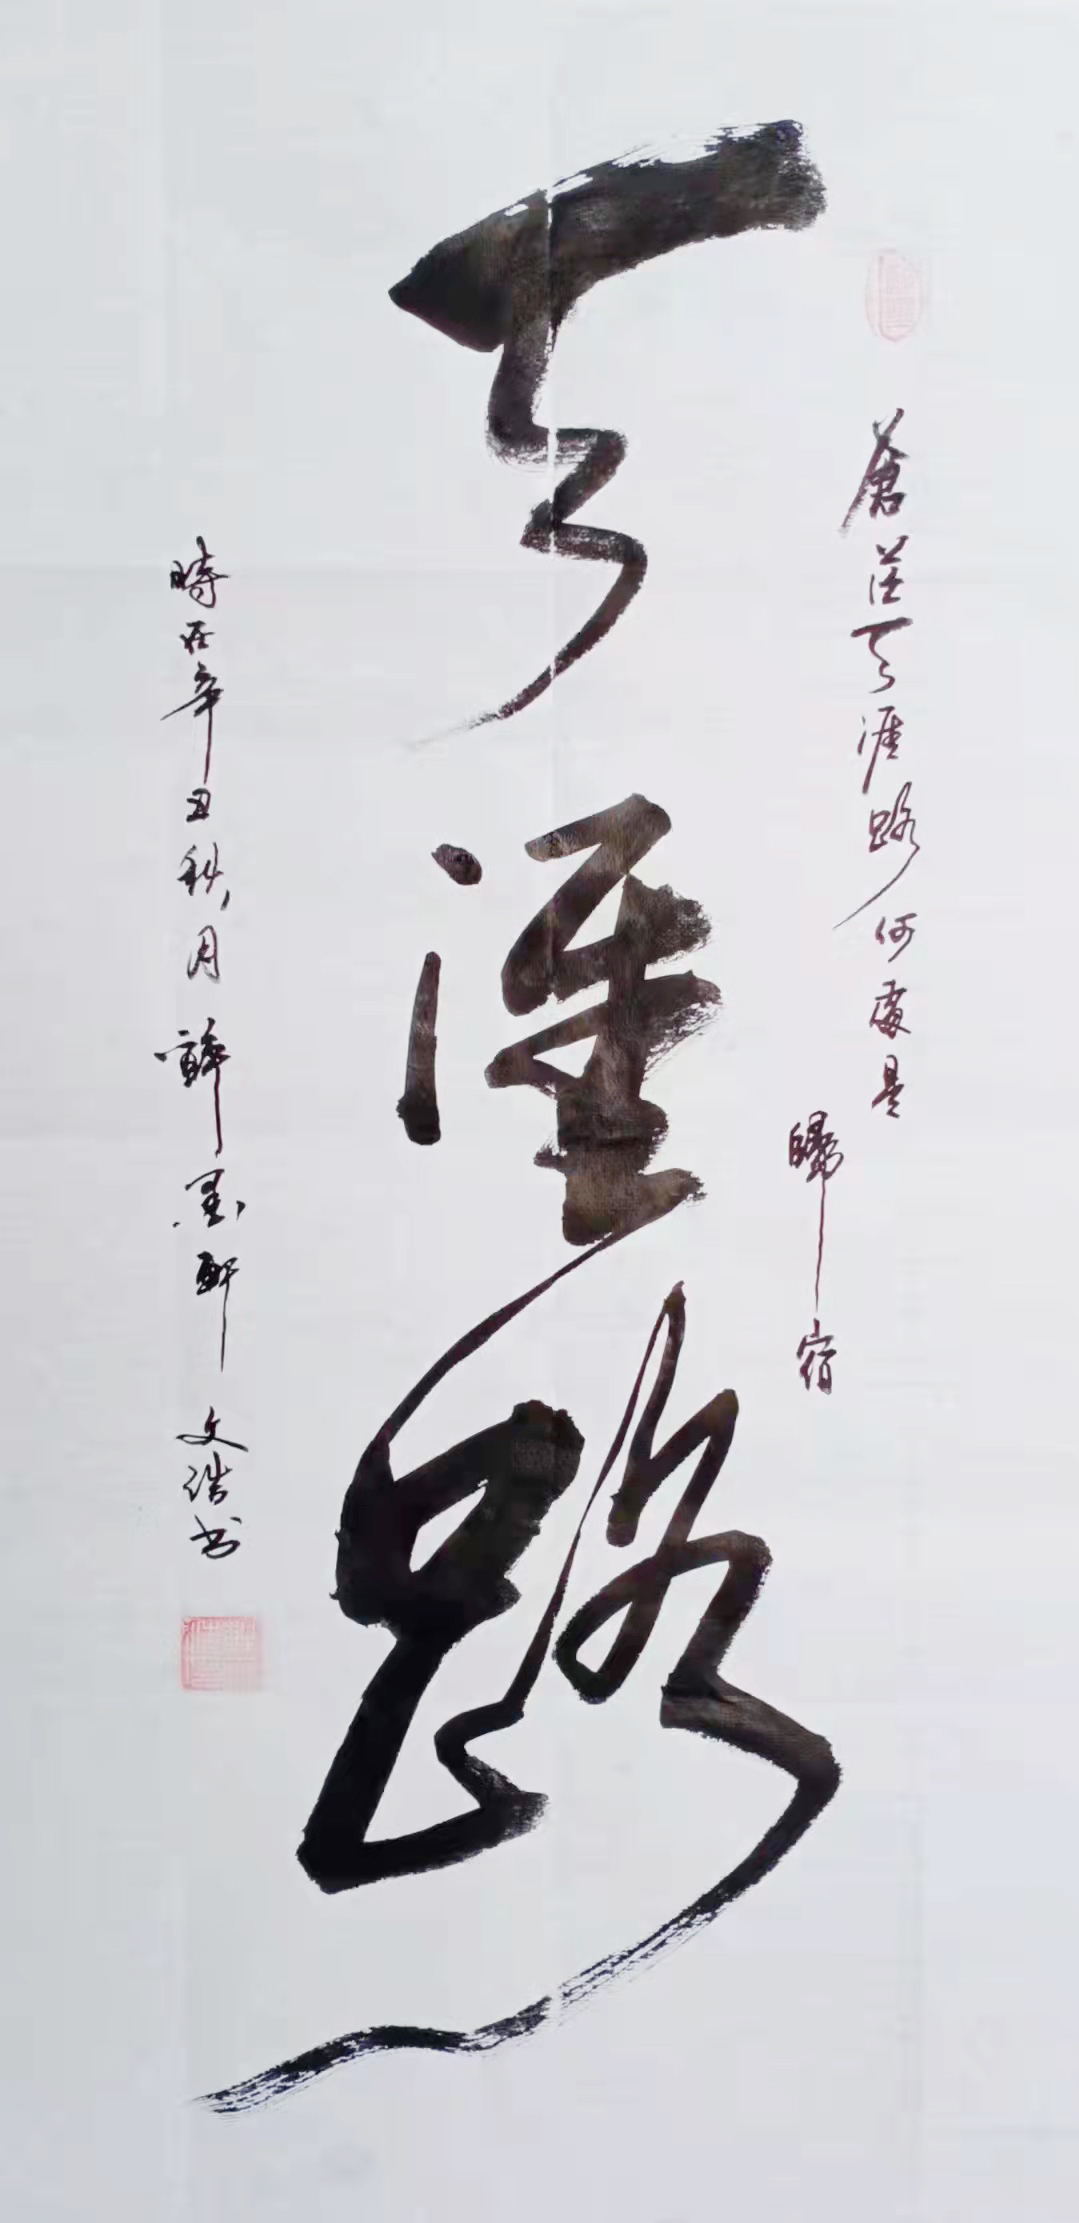 蒼茫天涯路何處是
歸宿
天涯路
時在辛丑秋月醉墨軒文浩書